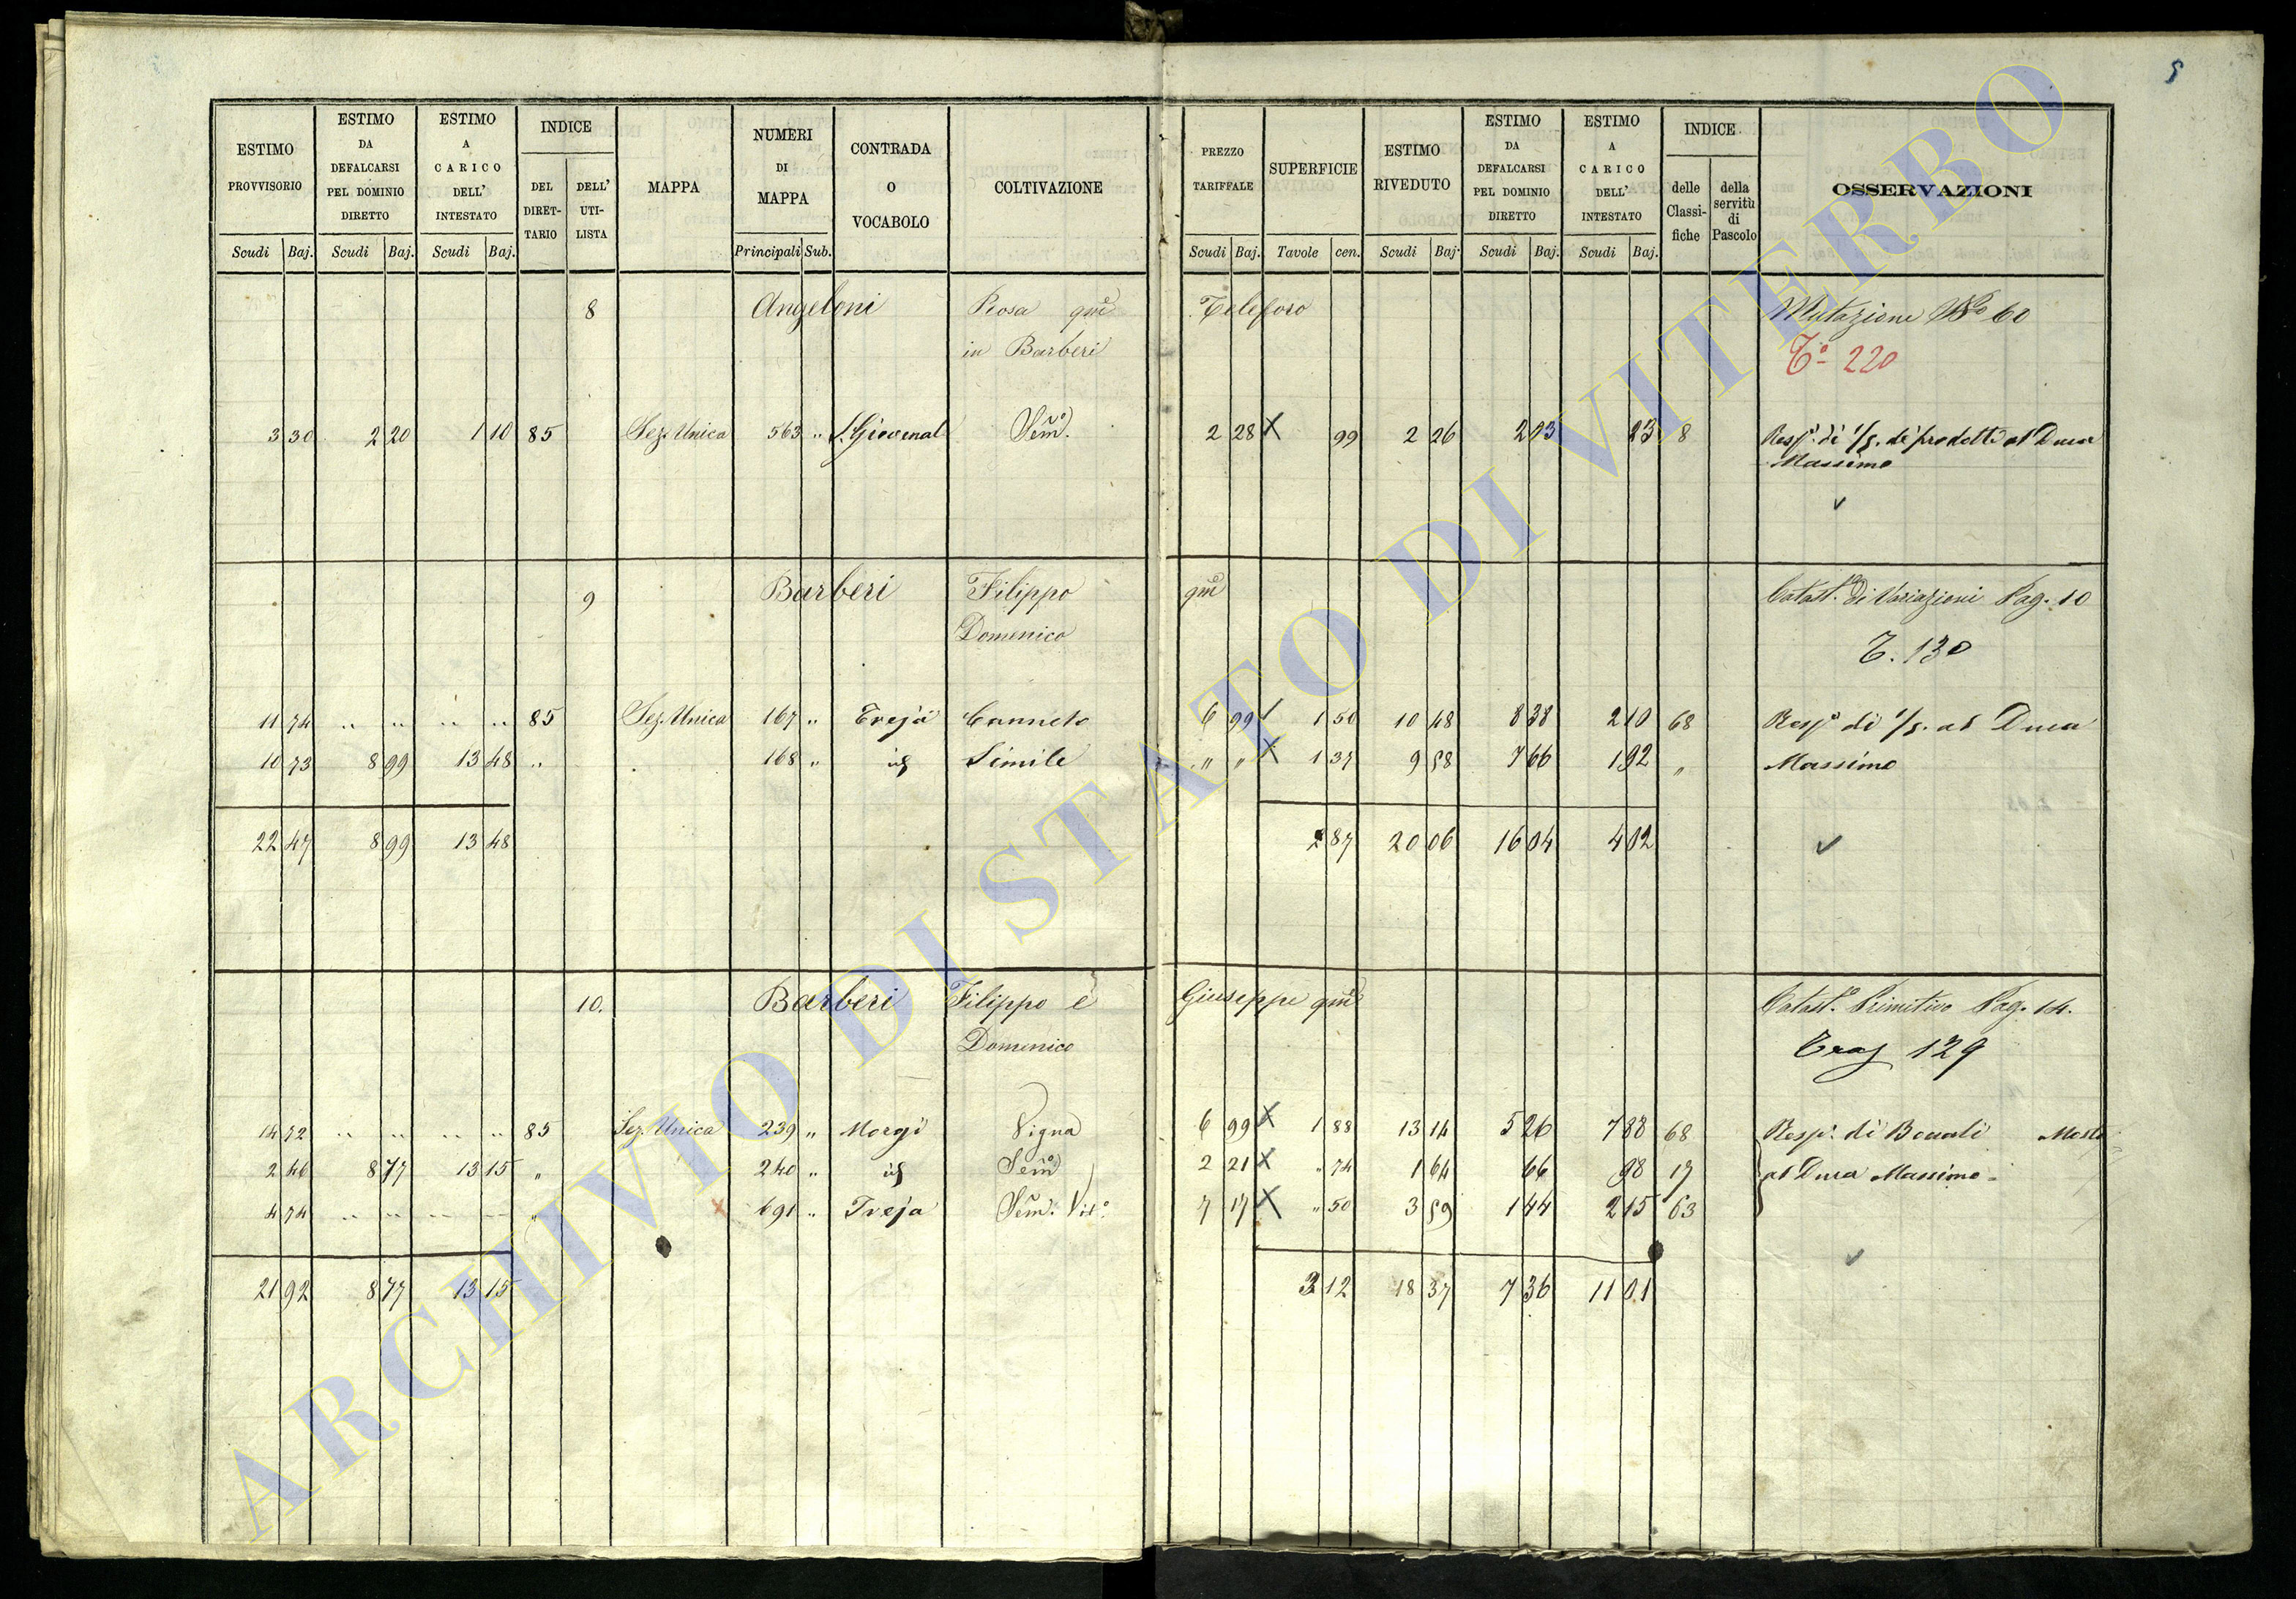 5
ESTIMO PROVVISORIO | ESTIMO DA DEFALCARSI PEL DOMINIO DIRETTO | ESTIMO A CARICO DELL' INTESTATO | INDICE | MAPPA | NUMERI DI MAPPA | CONTRADA O VOCABOLO | COLTIVAZIONE | PREZZO TARIFFALE | SUPERFICIE | ESTIMO RIVEDUTO | ESTIMO DA DEFALCARSI PEL DOMINIO DIRETTO | ESTIMO A CARICO DELL' INTESTATO | INDICE | OSSERVAZIONI
DEL DIRET-TARIO | DELL' UTI-LISTA | delle Classi-fiche | della servitù di Pascolo
Scudi | Baj. | Scudi | Baj. | Scudi | Baj. | Principali | Sub. | Scudi | Baj. | Tavole | cen. | Scudi | Baj. | Scudi | Baj. | Scudi | Baj.
8 Angeloni Rosa qm̃ Telesforo Mutazione No 60
in Barberi To 220
3 30 2 20 1 10 85 Sez. Unica 563 " S. Giovenal Sem̃o. 2 28 X 99 2 26 2 03 23 8 Resp. di 1/5. di prodotti al Duca
Massimo
✓
9 Barberi Filippo qm̃ Catast.o di Variazioni Pag. 10
Domenico T. 130
11 74 " " " " 85 Sez. Unica 167 " Treja Canneto 6 99 1 50 10 48 8 38 2 10 68 Resp. di 1/5. al Duca
10 73 8 99 13 48 " 168 " id Simile " " X 1 37 9 58 7 66 1 92 " Massimo
22 47 8 99 13 48 2 87 20 06 16 04 4 02 ✓
10. Barberi Filippo e Giuseppe qm̃ Catast.o Primitivo Pag. 14.
Domenico Tras 129
14 72 " " " " 85 Sez. Unica 239 " Morgi Vigna 6 99 X 1 88 13 14 5 26 7 88 68 Resp. di Boccali Mosto
2 46 8 77 13 15 " 240 " id Sem̃o 2 21 X " 74 1 64 66 98 17 al Duca Massimo
4 74 " " " " " X 691 " Treja Sem̃. Vit.o 7 17 X " 50 3 59 1 44 2 15 63
21 92 8 77 13 15 3 12 18 37 7 36 11 01 ✓
ARCHIVIO DI STATO DI VITERBO